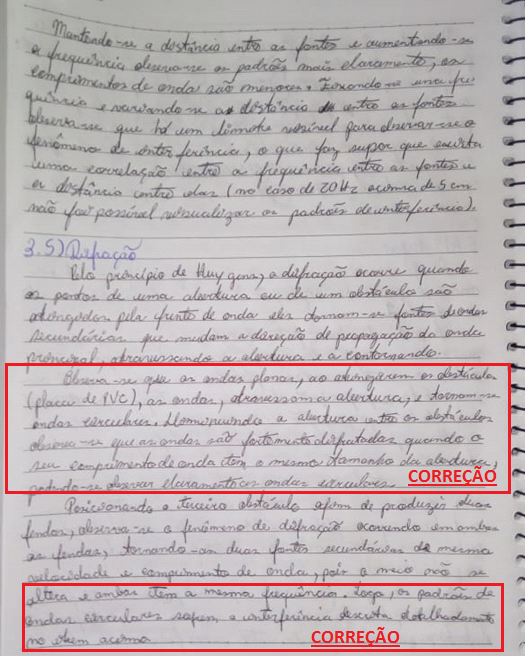 Mantendo-se a distância entre as fontes e aumentando-se
a frequência observa-se os padrões mais claramente, os
comprimentos de onda são menores. Fixando-se uma fre
quência e variando-se a distância entre as fontes
observa-se que há um limite visível para observar-se o
fenômeno de interferência, o que faz supor que exista
uma correlação entre a frequência entre as fontes e
a distância entre elas (no caso de 20Hz acima de 5 cm
não foi possível visualizar os padrões de interferência).
3.5) Difração
Pelo princípio de Huygens, a difração ocorre quando
os pontos de uma abertura ou de um obstáculo são
atingidos pela frente de onda eles tornam-se fontes de ondas
secundárias que mudam a direção de propagação da onda
principal, atravessando a abertura e a contornando.
Observa-se que as ondas planas, ao atingirem os obstáculos
(placas de PVC), as ondas, atravessam a abertura, e tornam-se
ondas circulares. Diminuindo a abertura entre os obstáculos
observa-se que as ondas são fortemente difratadas quando o
seu comprimento de onda tem o mesmo tamanho da abertura,
podendo-se observar claramente as ondas circulares.
CORREÇÃO
Posicionando o terceiro obstáculo afim de produzir duas
fendas, observa-se o fenômeno de difração ocorrendo em ambas
as fendas, tornando-as duas fontes secundárias de mesma
velocidade e comprimento de onda, pois o meio não se
altera e ambas tem a mesma frequência. Logo, os padrões de
ondas circulares sofrem a interferência descrita detalhadamente
no item acima.
CORREÇÃO